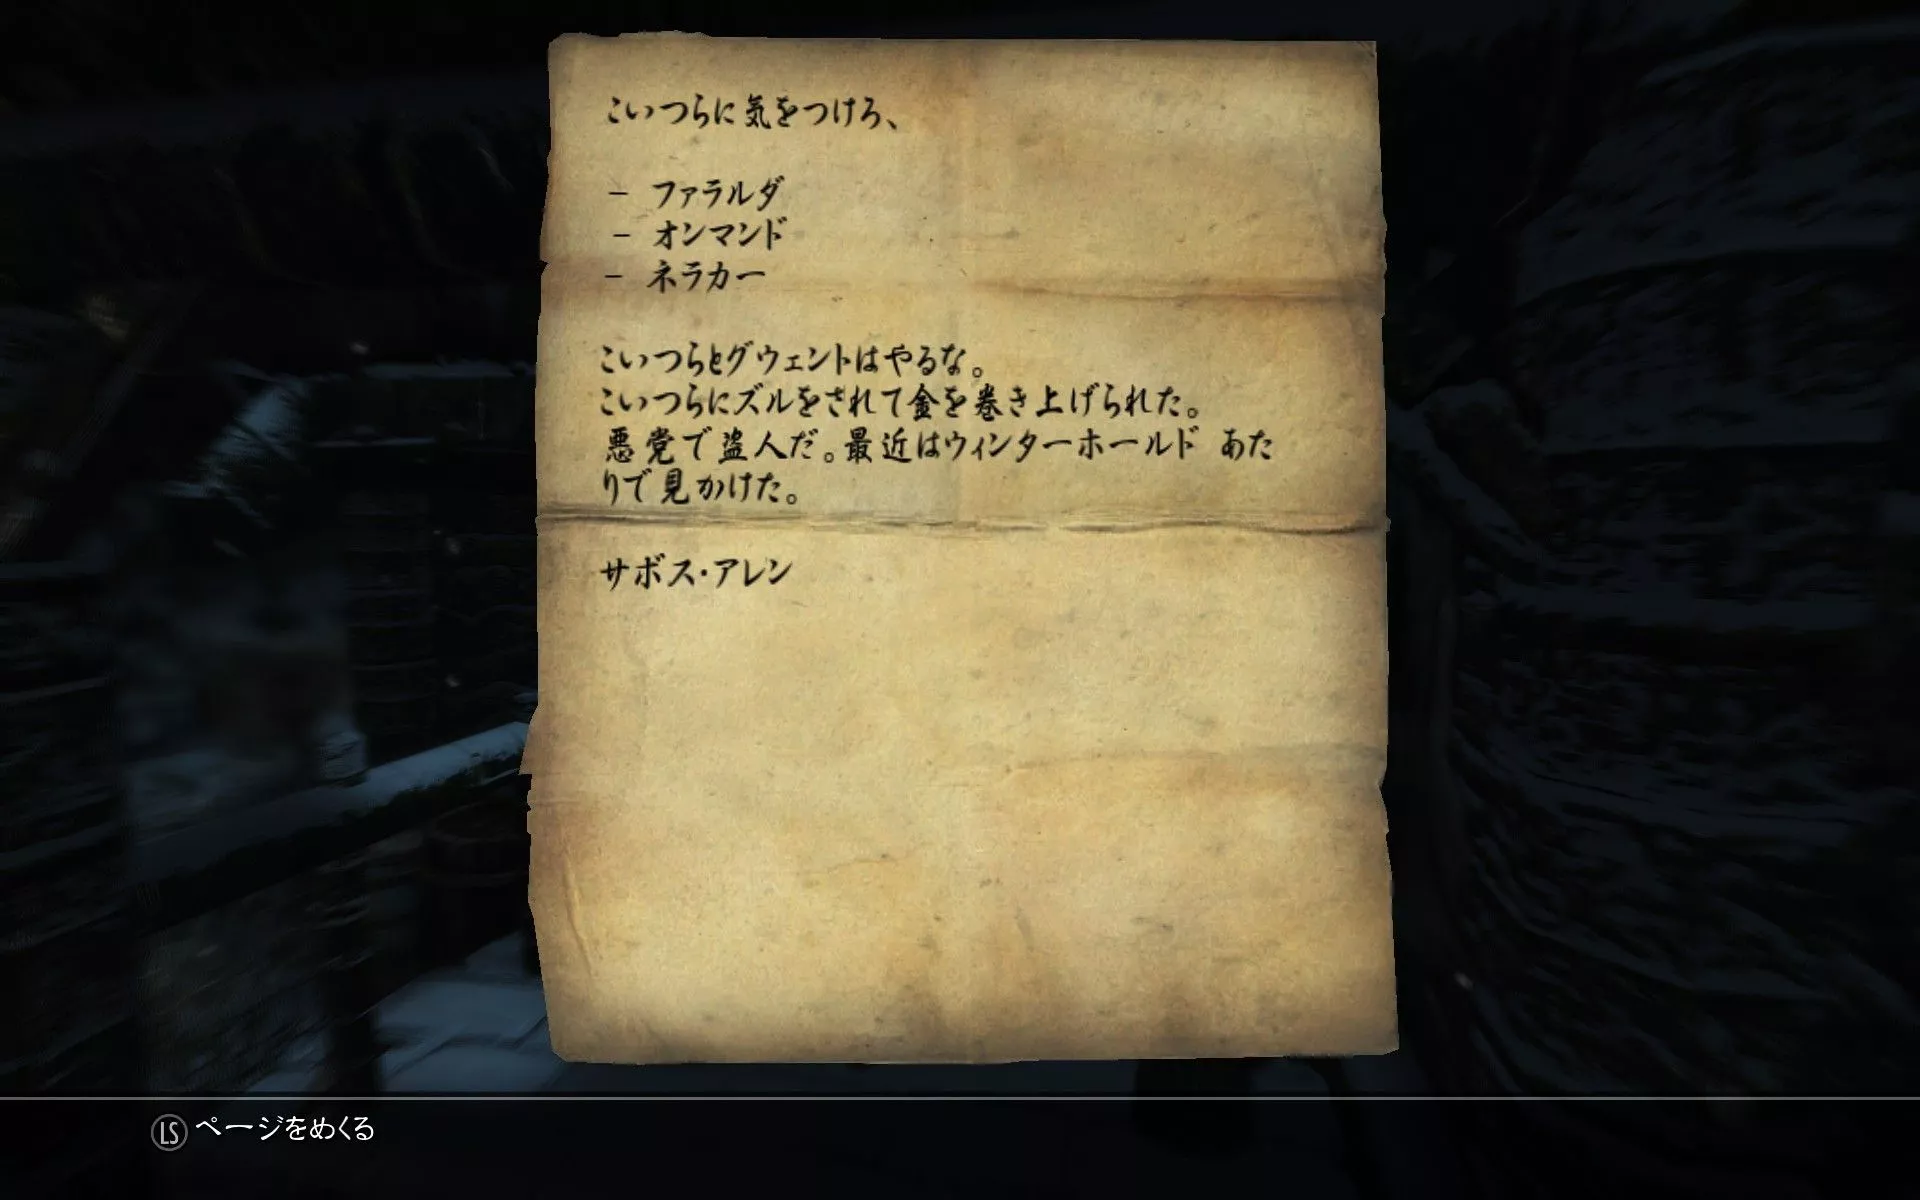 こいつらに気をつけろ、
－ ファラルダ
－ オンマンド
－ ネラカー
こいつらとグウェントはやるな。
こいつらにズルをされて金を巻き上げられた。
悪党で盗人だ。最近はウィンターホールド あた
りで見かけた。
サボス・アレン
LS ページをめくる